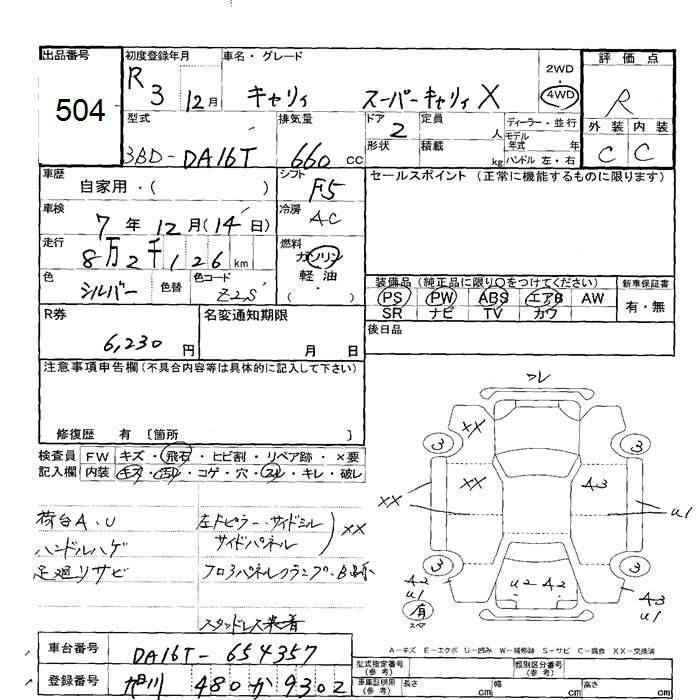 出品番号
504
初度登録年月
R 3 12月
車名・グレード
キャリィ スーパーキャリィ X
2WD
4WD
評価点
R
外装 内装
C C
型式
3BD-DA16T
排気量
660 cc
ドア
2
定員
人
形状
積載
kg
ディーラー・並行
モデル
年式 年
ハンドル 左・右
車歴
自家用・( )
シフト
F5
セールスポイント (正常に機能するものに限ります)
車検
7年 12月(14日)
冷房
AC
走行
8万2千126 km
燃料
ガソリン
軽油
・
( )
色
シルバー
色替
色コード
Z2S
装備品 (純正品に限り○をつけてください)
PS PW ABS エアB AW
SR ナビ TV カワ
新車保証書
有・無
R券
6,230 円
名変通知期限
月 日
後日品
注意事項申告欄 (不具合内容等は具体的に記入して下さい)
修復歴 有 〔箇所 〕
検査員
記入欄
FW キズ・飛石・ヒビ割・リペア跡・×要
内装 キズ・汚レ・コゲ・穴・スレ・キレ・破レ
荷台A.U
ハンドルハゲ
足廻リサビ
左Fピラー・サイドシル
サイドパネル
XX
スタッドレス装着
フレ
XX
3
3
XX
XX
A3
u1
3
3
A2
u1
u2 A2
A3
u1
有
スペア
A-キズ E-エクボ U-凹み W-補修跡 S-サビ C-腐食 XX-交換済
車台番号
DA16T-654357
登録番号
旭川 480 か 9302
型式指定番号
(参考)
類別区分番号
(参考)
車庫証明用
(参考)
長さ cm
幅 cm
高さ cm